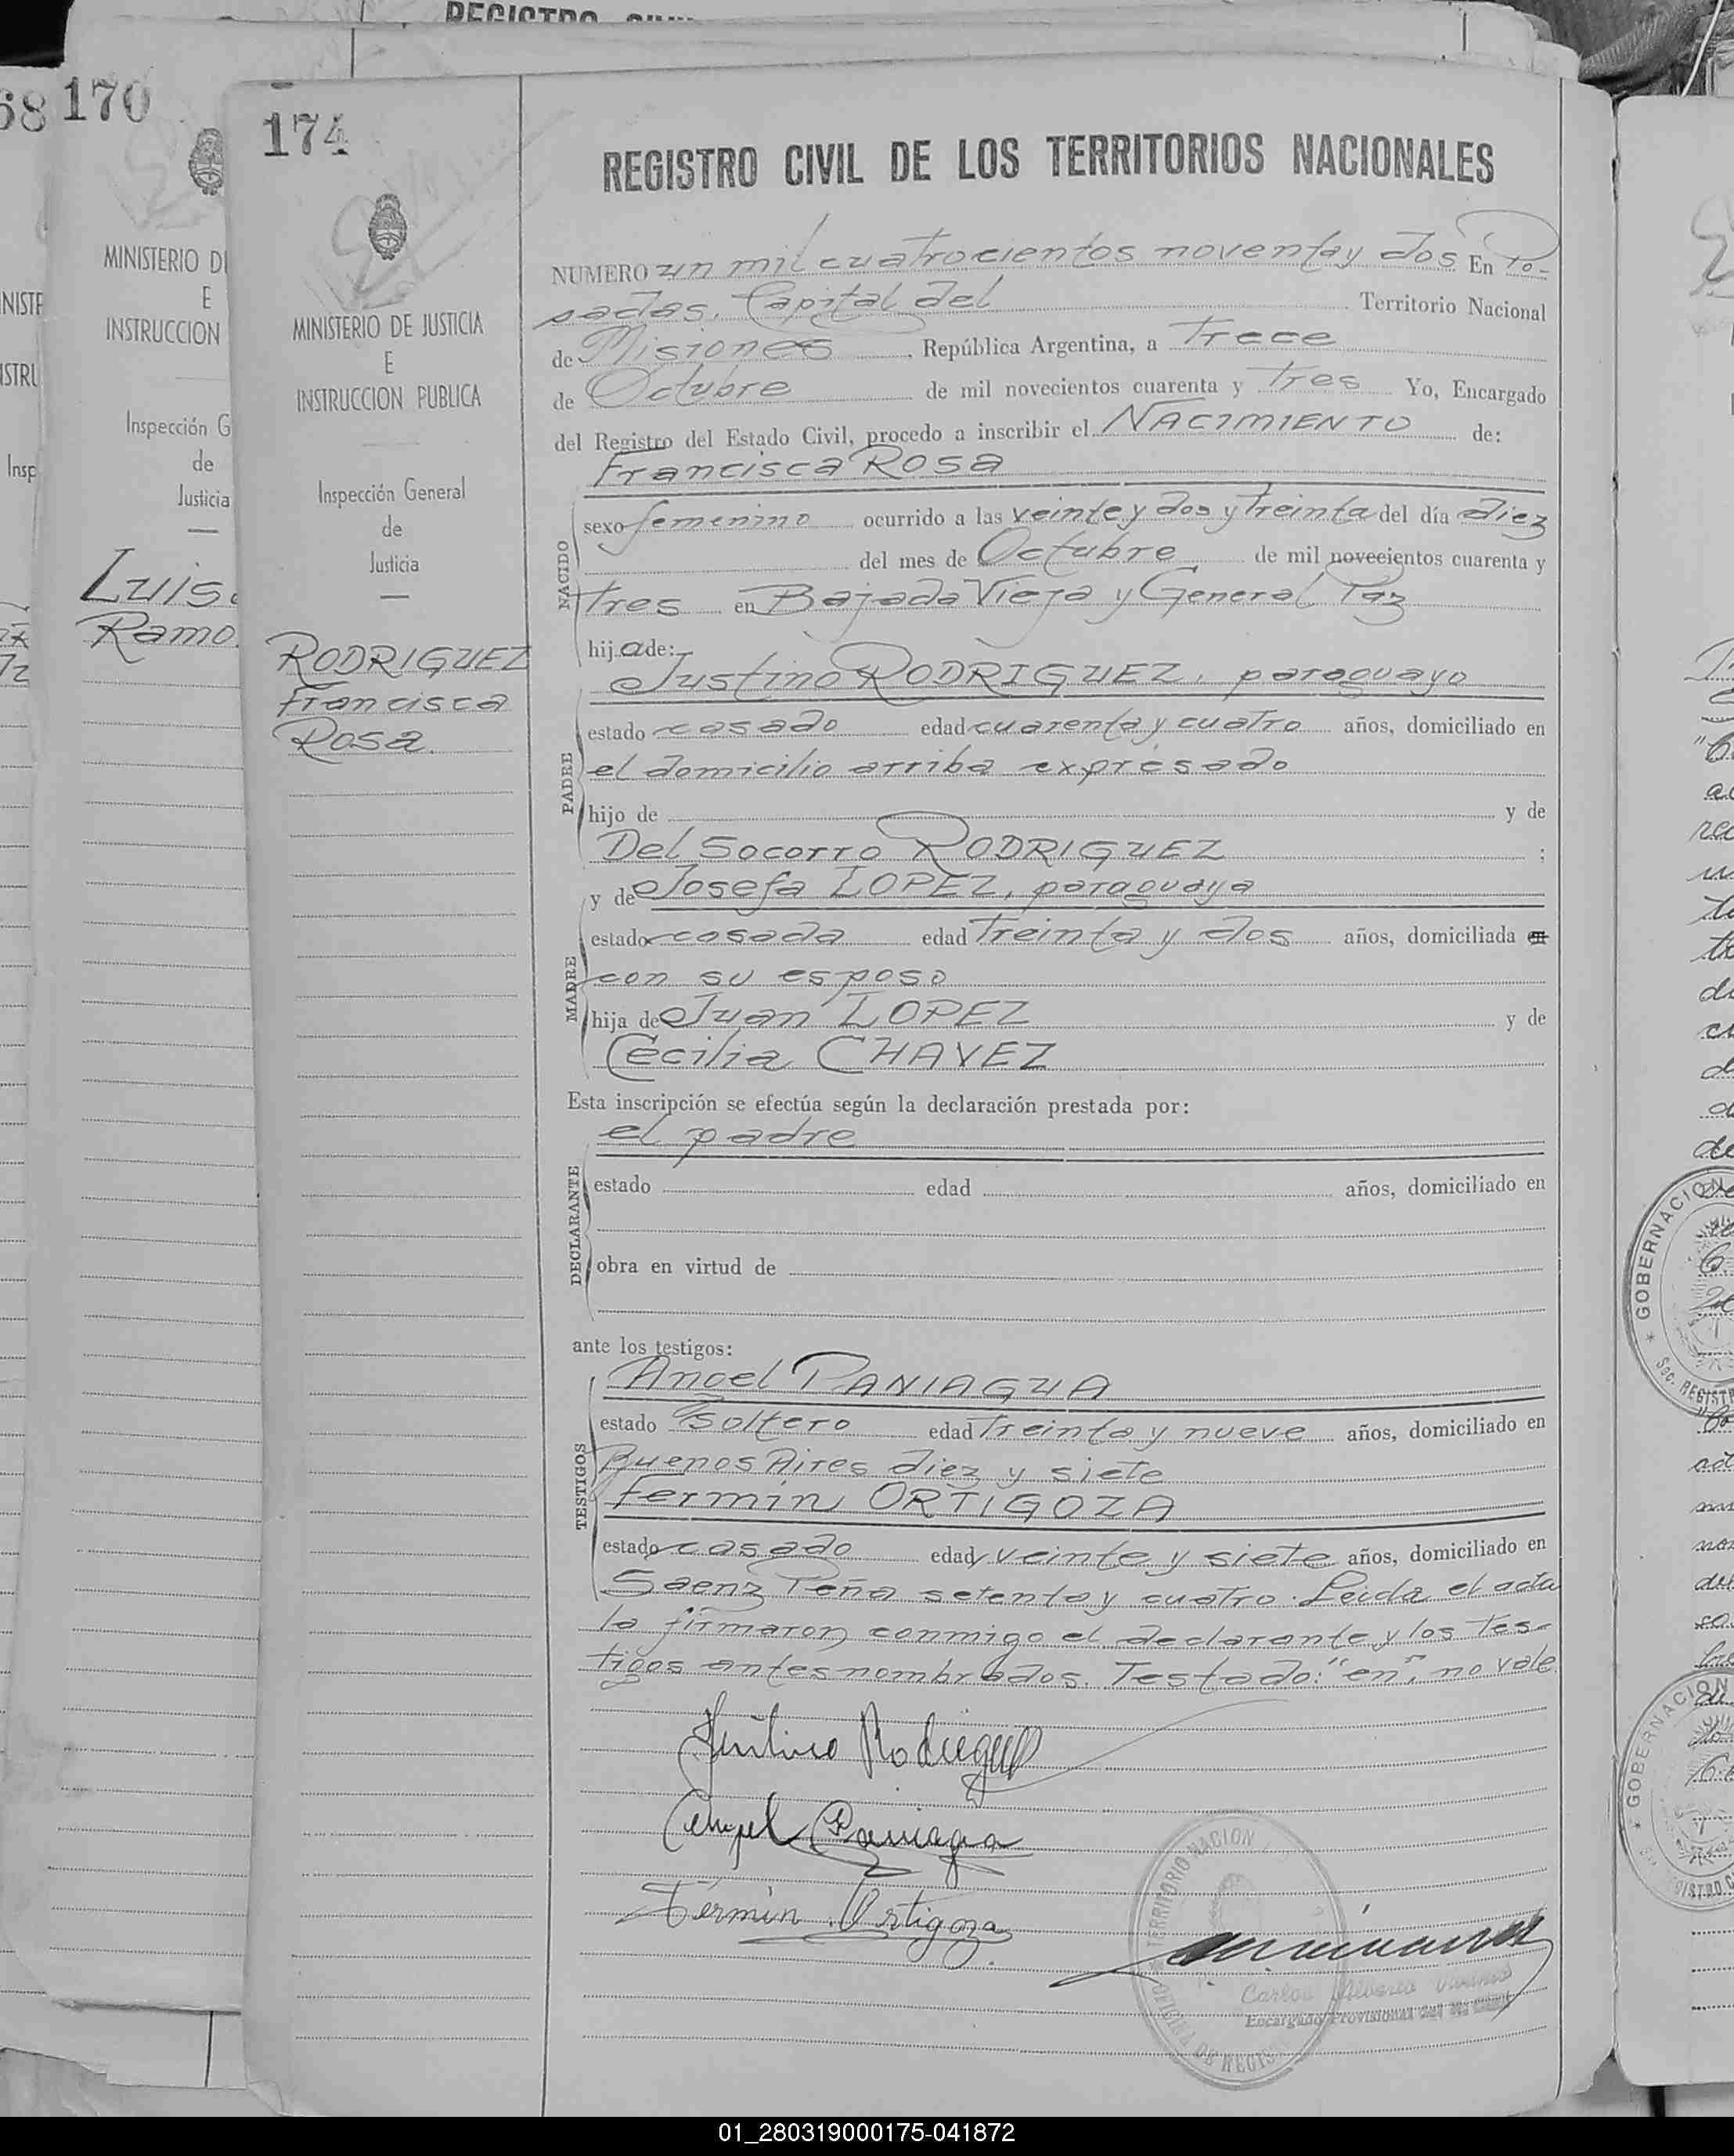 REGISTRO
68
170
174
MINISTERIO D
E
INSTRUCCION
Inspección G
de
Justicia
Luis
Ramo
MINISTERIO DE JUSTICIA
E
INSTRUCCION PUBLICA
Inspección General
de
Justicia
RODRIGUEZ
Francisca
Rosa.
REGISTRO CIVIL DE LOS TERRITORIOS NACIONALES
NUMERO un mil cuatrocientos noventa y dos En Po-
sadas, Capital del Territorio Nacional
de Misiones, República Argentina, a Trece
de Octubre de mil novecientos cuarenta y Tres Yo, Encargado
del Registro del Estado Civil, procedo a inscribir el NACIMIENTO de:
Francisca Rosa
NACIDO
sexo femenino ocurrido a las veinte y dos y Treinta del día diez
del mes de Octubre de mil novecientos cuarenta y
Tres en Bajada Vieja y General Paz
hija de:
Justino RODRIGUEZ, paraguayo
PADRE
estado casado edad cuarenta y cuatro años, domiciliado en
el domicilio arriba expresado
hijo de y de
Del Socorro RODRIGUEZ ;
y de Josefa LOPEZ, paraguaya
MADRE
estado casada edad Treinta y dos años, domiciliada en
con su esposo
hija de Juan LOPEZ y de
Cecilia CHAVEZ
Esta inscripción se efectúa según la declaración prestada por:
el padre
DECLARANTE
estado edad años, domiciliado en
obra en virtud de
ante los testigos:
Angel PANIAGUA
TESTIGOS
estado Soltero edad Treinta y nueve años, domiciliado en
Buenos Aires diez y siete
Fermín ORTIGOZA
estado casado edad veinte y siete años, domiciliado en
Saenz Peña setenta y cuatro. Leída el acta
la firmaron conmigo el declarante y los Tes-
tigos antes nombrados. Testado: "en", no vale
Justino Rodriguez
Angel Paniagua
Fermín Ortigoza
Carlos Alberto
Encargado Provisional del
GOBERNACION
GOBERNACION
01_280319000175-041872